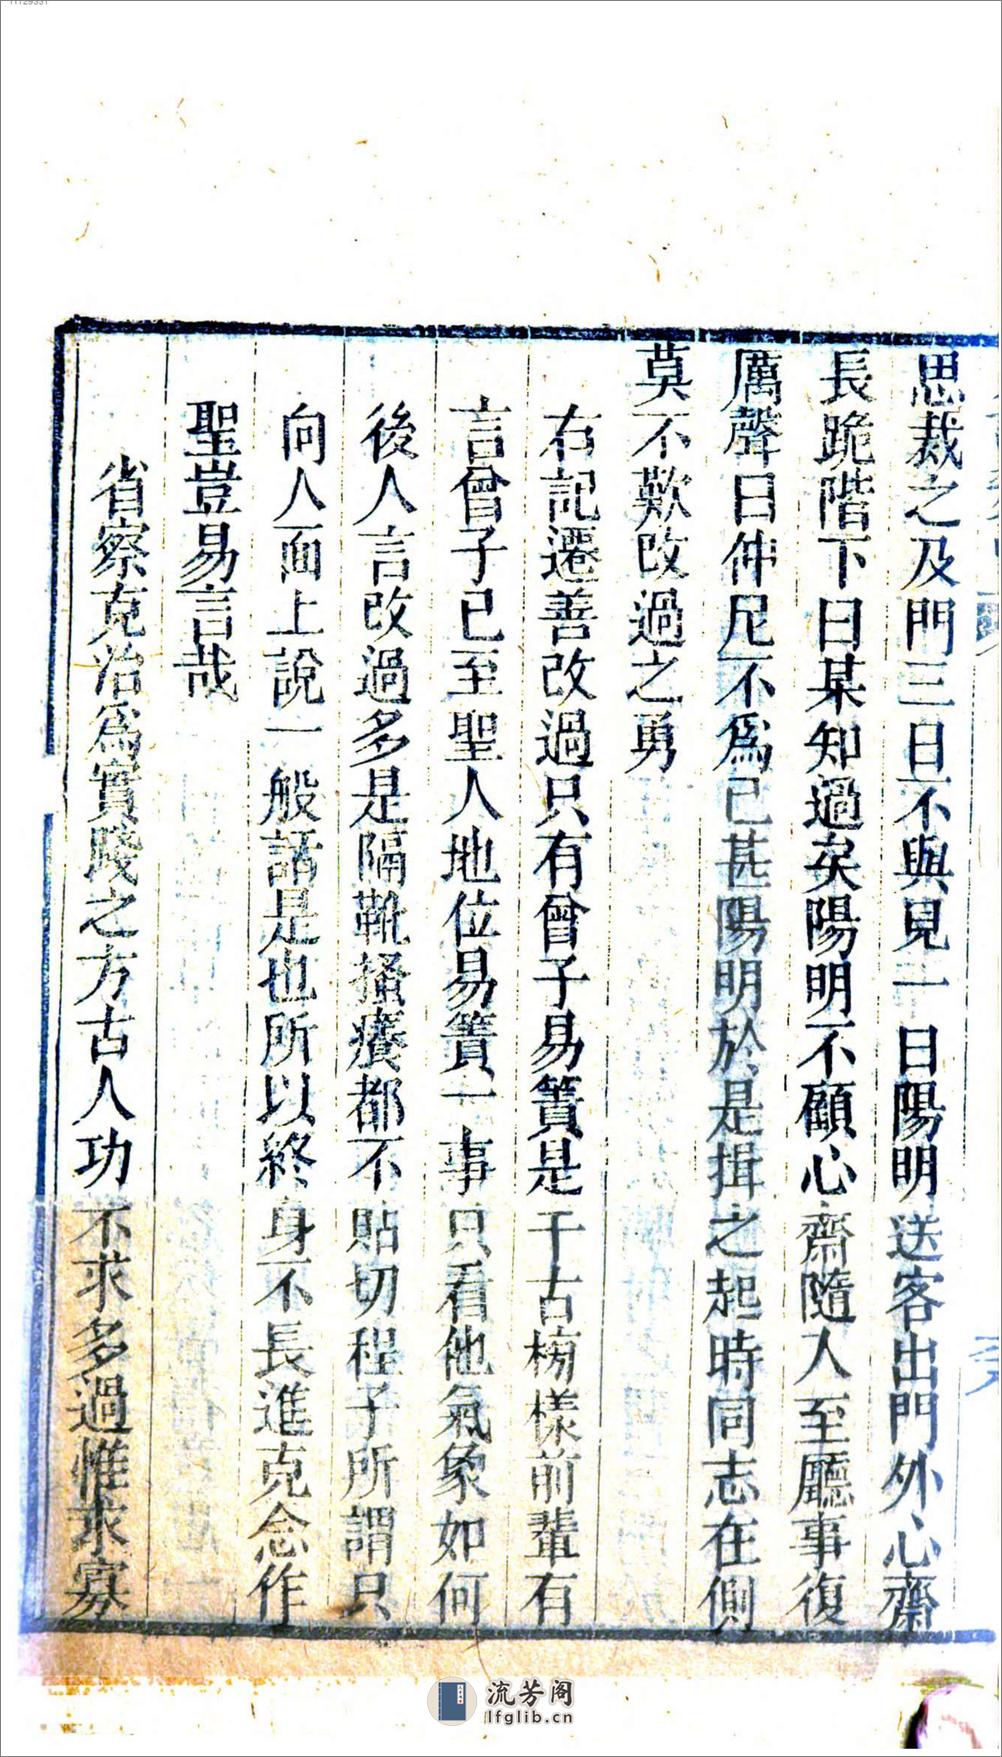 思裁之及門三日不與見一日陽明送客出門外心齋
長跪階下曰某知過矣陽明不顧心齋隨人至廳事復
厲聲曰仲尼不為已甚陽明於是揖之起時同志在側
莫不歎改過之勇
右記遷善改過只有曾子易簀是千古榜樣前輩有
言曾子已至聖人地位易簀一事只看他氣象如何
後人言改過多是隔靴搔癢都不貼切程子所謂只
向人面上說一般話是也所以終身不長進克念作
聖豈易言哉
省察克治爲實踐之方古人功不求多過惟求寡
流芳阁
lfglib.cn
11129331